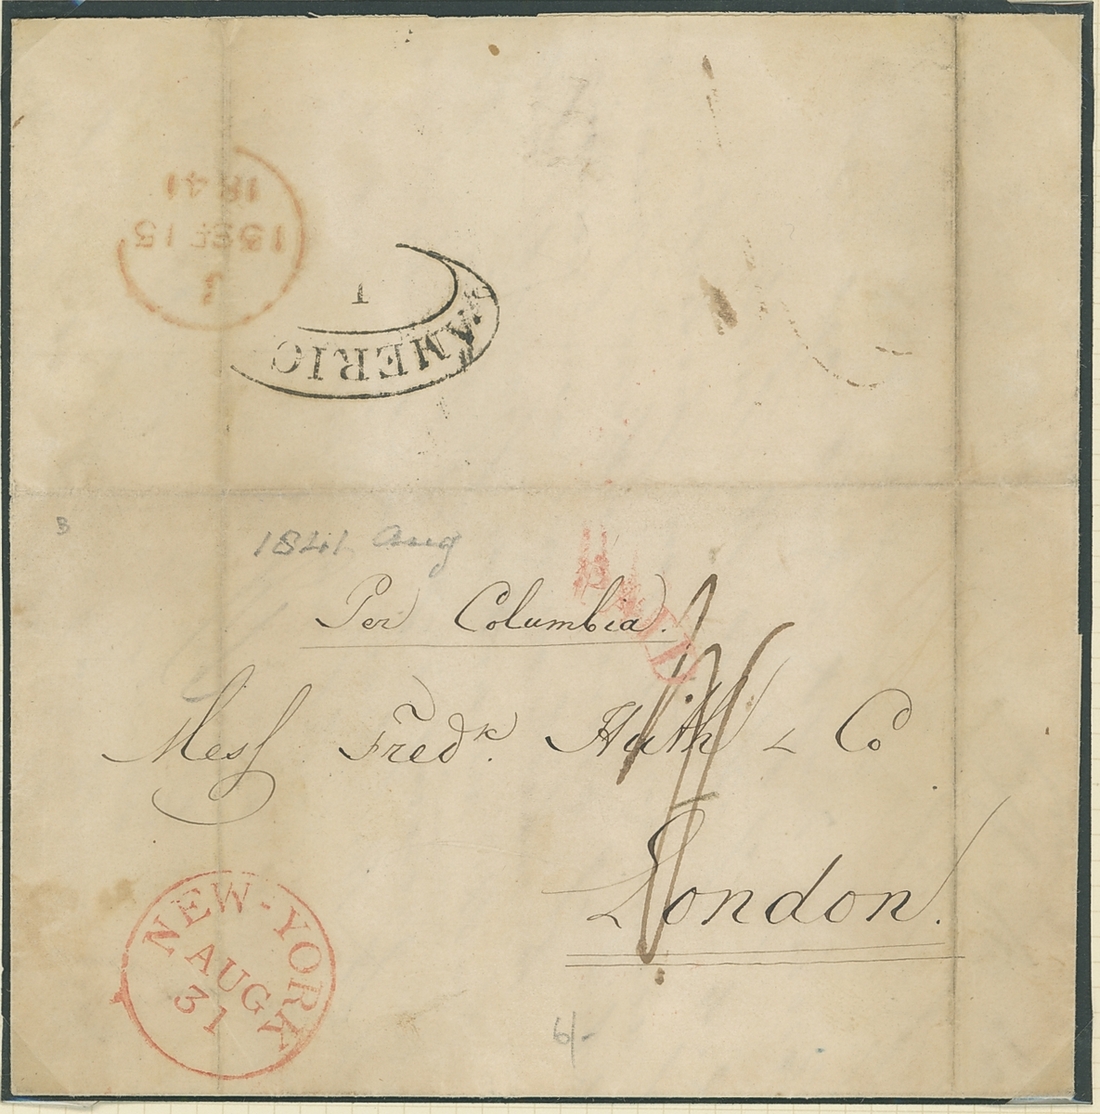 1841
15 SE 15
AMERIC
1
3
1841 Aug
PAID
Per Columbia.
Mess Fredk. Huth & Co
London.
NEW-YORK
AUG
31
6/-